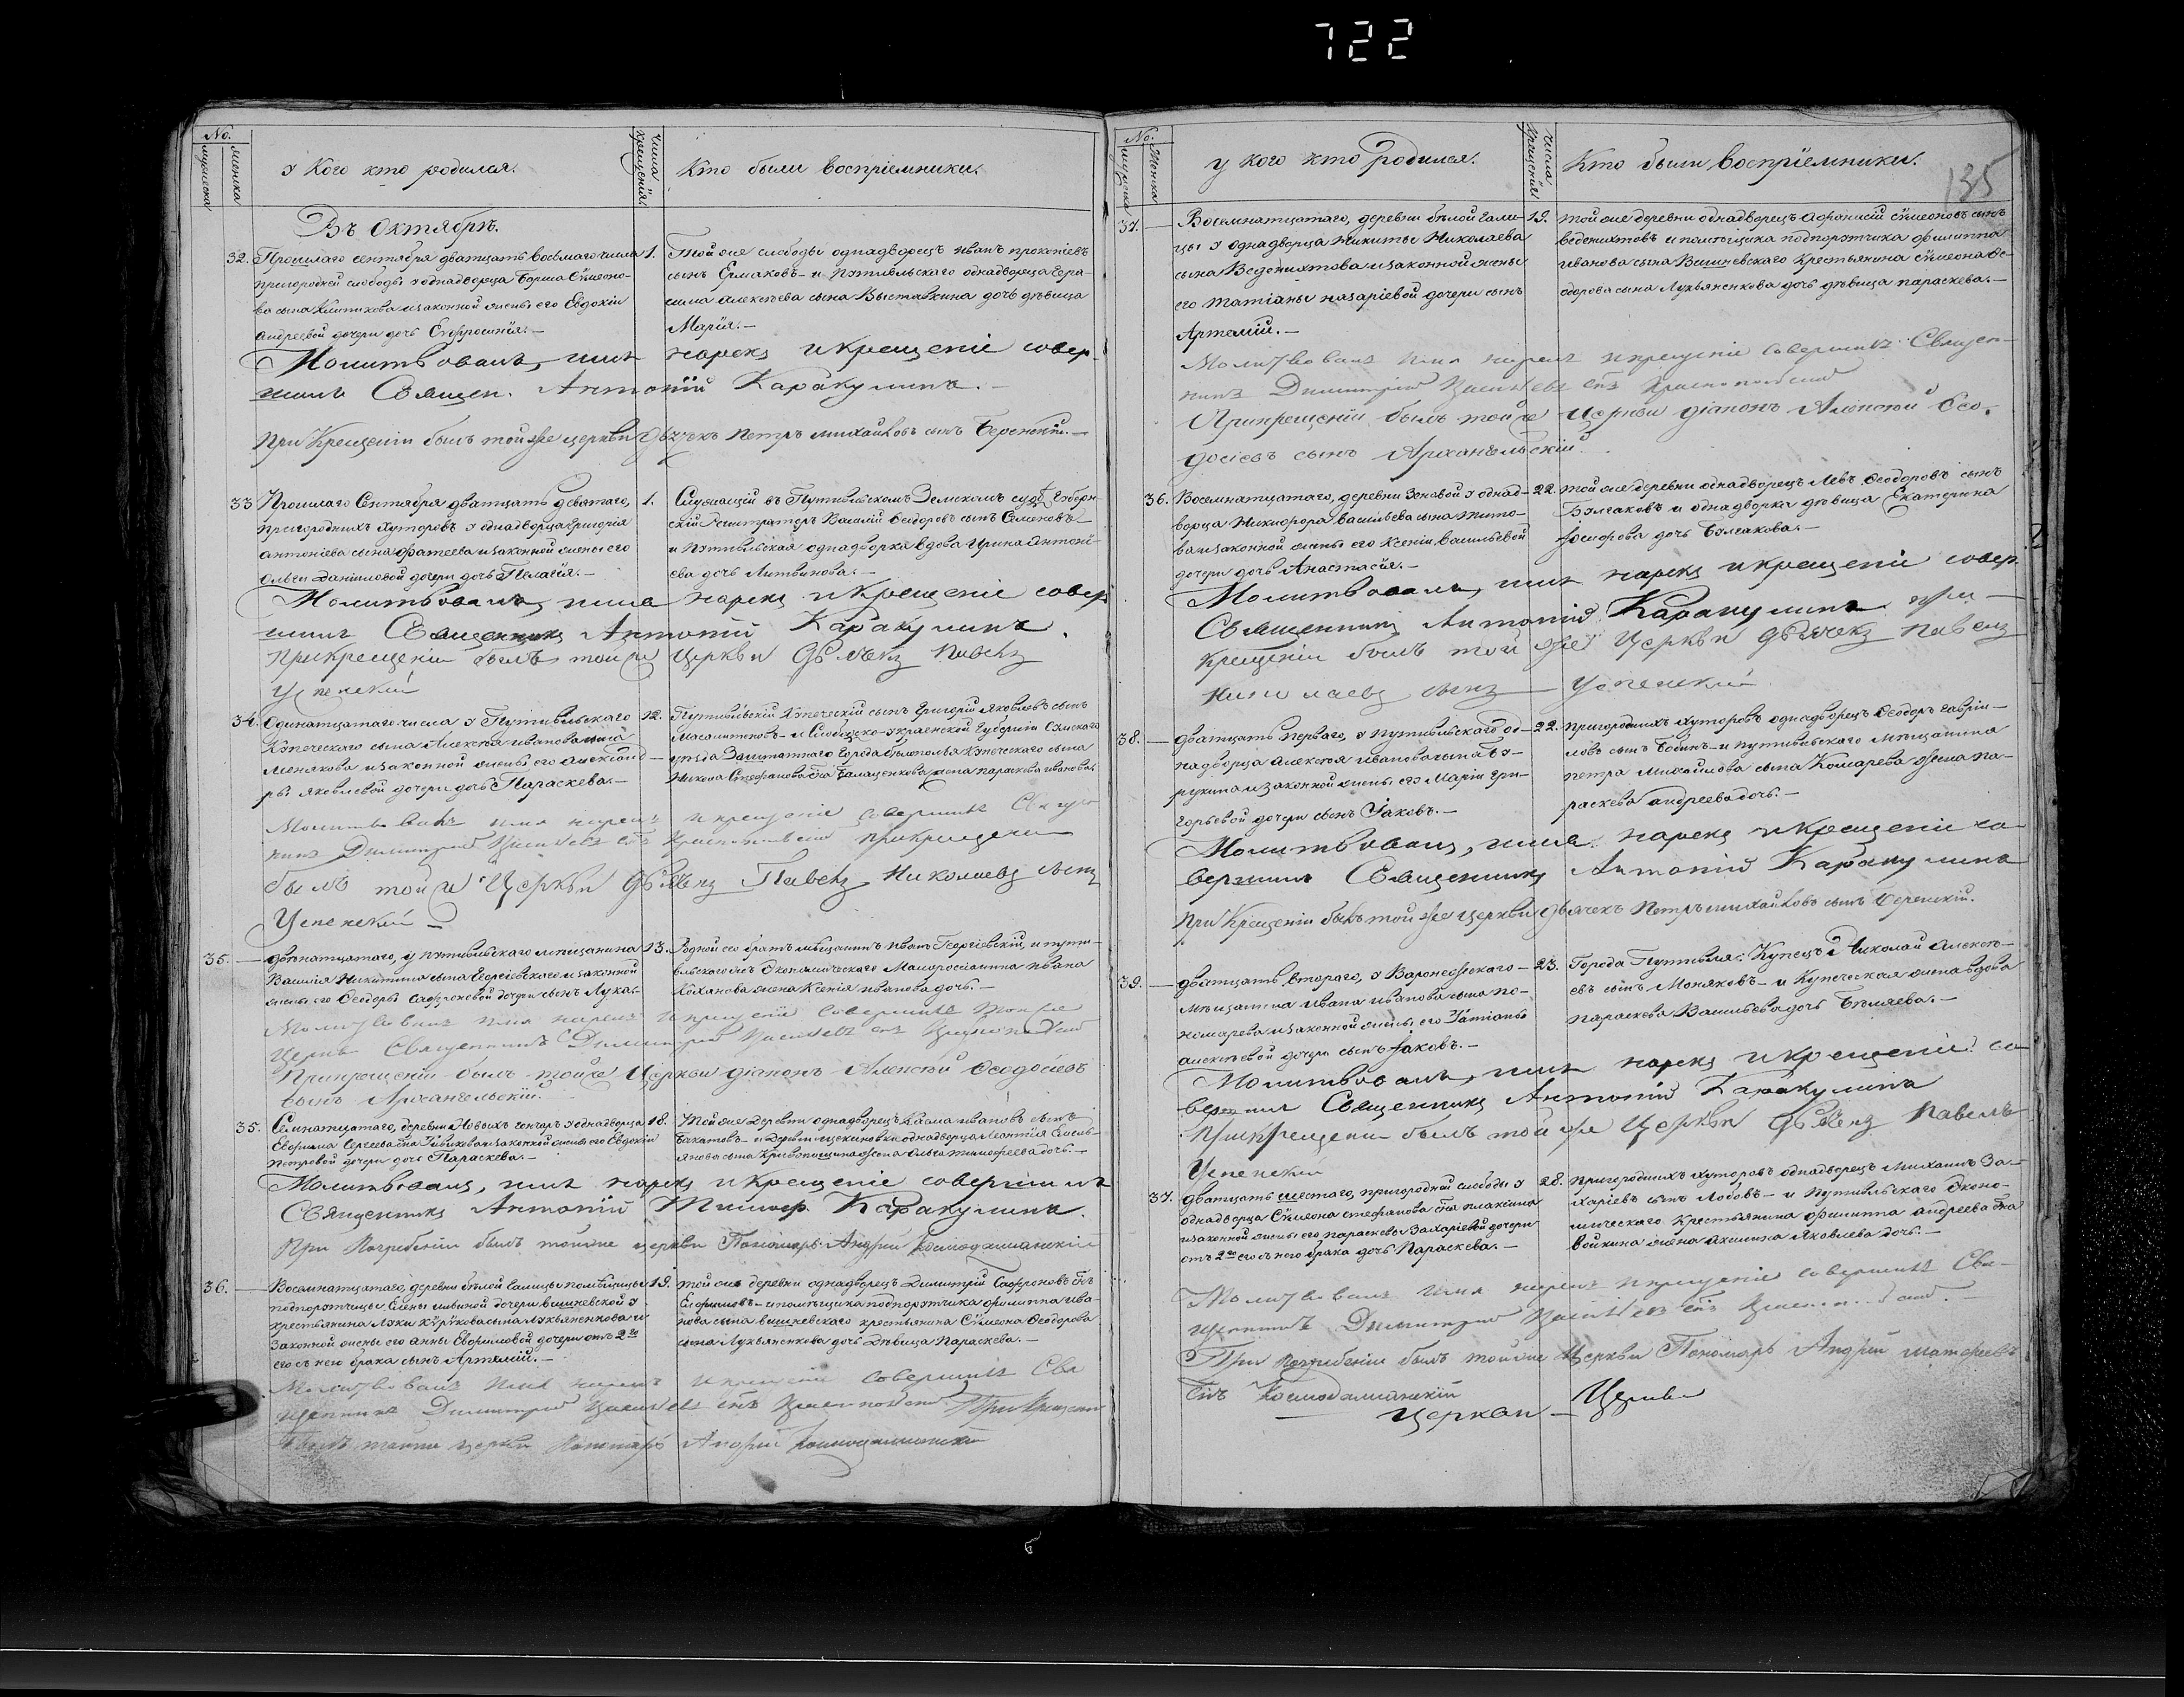 722
No.
мужеска
женска
У Кого кто родился.
Числа крещенія.
Кто были воспріемники.
Въ Октябрѣ.
32. Прошлаго сентября дватцать восьмаго числа
пригородней слободы у однадворца Бориса Сѵмеоно-
ва сына и законной жены его Евдокіи
Андреевой дочери дочь Евфросинія.-
1.
Той же слободы однадворецъ иванъ прокопіевъ
сынъ Ермаковъ- и Путивльскаго однадворца Гера-
сима алексѣева сына Выставкина дочь дѣвица
Марія.-
Молитвовалъ, имя нарекъ и крещеніе совер-
шилъ Священ. Антоній Каракулинъ.-
При Крещеніи былъ той же церкви дьячекъ Петръ михайловъ сынъ
33 Прошлаго Сентября дватцать девятаго,
пригородныхъ хуторовъ у однадворца григорія
антоніева сына фатеева и законной жены его
Ольги Даніиловой дочери дочь Пелагія.-
1.
Служащій въ Путивльскомъ Земскомъ судѣ Губерн-
скій Регистраторъ Василій Ѳеодоровъ сынъ Семеновъ
и Путивльская однадворка вдова Ирина Антоні-
ева дочь Литвинова.-
Молитвовалъ, имя нарекъ и крещеніе совер
шилъ Священникъ Антоній Каракулинъ.
При крещеніи былъ той же Церкви дьячекъ Павелъ
Успенскій
34. Одинатцатаго числа у Путивльскаго
Купеческаго сына Алексѣя иванова сына
Монякова и законной жены его александ-
ры Яковлевой дочери дочь Параскева.-
12.
Путивльскій Купеческій сынъ Григорій Яковлевъ сынъ
Масалитиновъ- и Слободско-украенской Губерніи Сумскаго
уѣзда Заштатнаго города бѣлополья Купеческаго сына
Николая Стефанова сна жена параскева иванова.
Молитвовалъ имя нарекъ и крещеніе совершилъ Священ
никъ Димитрій снъ при крещеніи
былъ той же Церкви дьячекъ Павелъ Николаевъ сынъ
Успенскій
35. двѣнатцатаго, у путивльскаго мѣщанина
Василія Никитина сына Георгіевскаго и законной
жены его Ѳеодоры Сафроновой дочери сынъ Лука.-
13.
Родной его братъ мѣщанинъ Иванъ Георгіевскій, и пути-
вльскаго Экономическаго Малоросіянина ивана
Коханова жена Ксенія иванова дочь.-
Молитвовалъ имя нарекъ и крещеніе совершилъ тойже
Церкви Священникъ Димитрій снъ
При крещеніи былъ тойже Церкви діаконъ Алексѣй Ѳеодосіевъ
сынъ Архангельскій.
35. Семнатцатаго, деревни Новыхъ гончаръ у однадворца
Евфима Сергеева сна и законной жены его Евдокіи
Петровой дочери дочь Параскева.-
18.
Той же Деревни однадворецъ ивановъ сынъ
- и Деревни однадворца Леонтія
сына жена Ольга тимофеева дочь.-
Молитвовалъ, имя нарекъ и крещеніе совершилъ
Священникъ Антоній Каракулинъ.
При Погребеніи былъ тойже церкви Пономарь Андрей Космодаміанскій
36. Восемнатцатаго, деревни бѣлой Галицы помѣщицы
подпорутчицы Елены ильиной дочери вишневской у
крестьянина Луки сына Лукьяненкова и
законной жены его анны Евфимовой дочери отъ 2го
его съ нею брака сынъ Артемій.-
19.
той же деревни однадворецъ Димитрій Сафроновъ снъ
Евфимовъ- и помѣщика подпорутчика филиппа ива-
нова сына вишневскаго крестьянина Сѵмеона Ѳеодорова
сына Лукьяненкова дочь Дѣвица Параскева.-
Молитвовалъ имя нарекъ и крещеніе совершилъ Свя
щенникъ Димитрій снъ При Крещеніи
былъ тойже церкви Пономарь Андрей Космодаміанскій
No.
мужеска
женска
у кого кто родился.
числа крещенія
Кто были воспріемники.
135
37. Восемнатцатаго, деревни бѣлой гали-
цы у однадворца Никиты Николаева
сына Веденихтова и законной жены
его татіаны назаріевой дочери сынъ
Артемій.-
19.
той же деревни однадворецъ афанасій сѵмеоновъ сынъ
веденихтовъ и помѣщика подпорутчика филиппа
иванова сына Вишневскаго крестьянина сѵмеона Ѳе-
одорова сына Лукьяненкова дочь дѣвица параскева.-
Молитвовалъ имя нарекъ и крещеніе совершилъ Священ-
никъ Димитрій снъ
При крещеніи былъ тойже Церкви діаконъ Алексѣй Ѳео-
досіевъ сынъ Архангельскій
36. Восемнатцатаго, деревни Зеновой у однад-
ворца Никифора васильева сына Тито-
ва и законной жены его Ксеніи васильевой
дочери дочь Анастасія.-
22.
той же деревни однадворецъ Левъ Ѳеодоровъ сынъ
Булгаковъ и однадворка дѣвица Екатерина
дочь Булгакова.-
Молитвовалъ, имя нарекъ и крещеніе совер.
Священникъ Антоній Каракулинъ при-
крещеніи былъ той же Церкви дьячекъ Павелъ
Николаевъ сынъ Успенскій
38. дватцать перваго, у путивльскаго од-
надворца Алексѣя иванова сына Бу-
рухина и законной жены его Маріи гри-
горьевой дочери сынъ Іаковъ.-
22.
Пригородныхъ хуторовъ однадворецъ Ѳеодоръ гавріи-
ловъ сынъ Бобинъ- и путивльскаго мѣщанина
петра Михайлова сына Комарева жена па-
раскева андреева дочь.-
Молитвовалъ, имя нарекъ и крещеніе со-
вершилъ Священникъ Антоній Каракулинъ
При Крещеніи былъ той же церкви дьячекъ Петръ михайловъ сынъ
39. дватцать втораго, у Варонежскаго
мѣщанина ивана иванова сына по-
номарева и законной жены его Татіаны
алексѣевой дочери сынъ Іаковъ.-
23.
Города Путивля: Купецъ Николай Алексѣ-
евъ сынъ Моняковъ- и Купеческая жена вдова
параскева Васильева дочь Бѣляева.-
Молитвовалъ, имя нарекъ и крещеніе со
вершилъ Священникъ Антоній Каракулинъ
При крещеніи былъ той же Церкви дьячекъ Павелъ
Успенскій
37. Дватцать шестаго, пригородной слободы у
однадворца Сѵмеона стефанова сна
и законной жены его параскевы Захаріевой дочери
отъ 2го его съ нею брака дочь Параскева.-
28.
Пригородныхъ хуторовъ однадворецъ Михаилъ За-
харіевъ сынъ Лобовъ- и Путивльскаго Эконо-
мическаго Крестьянина филиппа андреева сна
войкина жена акилина Яковлева дочь.-
Молитвовалъ имя нарекъ и крещеніе совершилъ Свя-
щенникъ Димитрій снъ
При Погребеніи былъ тойже Церкви Пономарь Андрей матфеевъ
снъ Космодаміанскій
Церкви